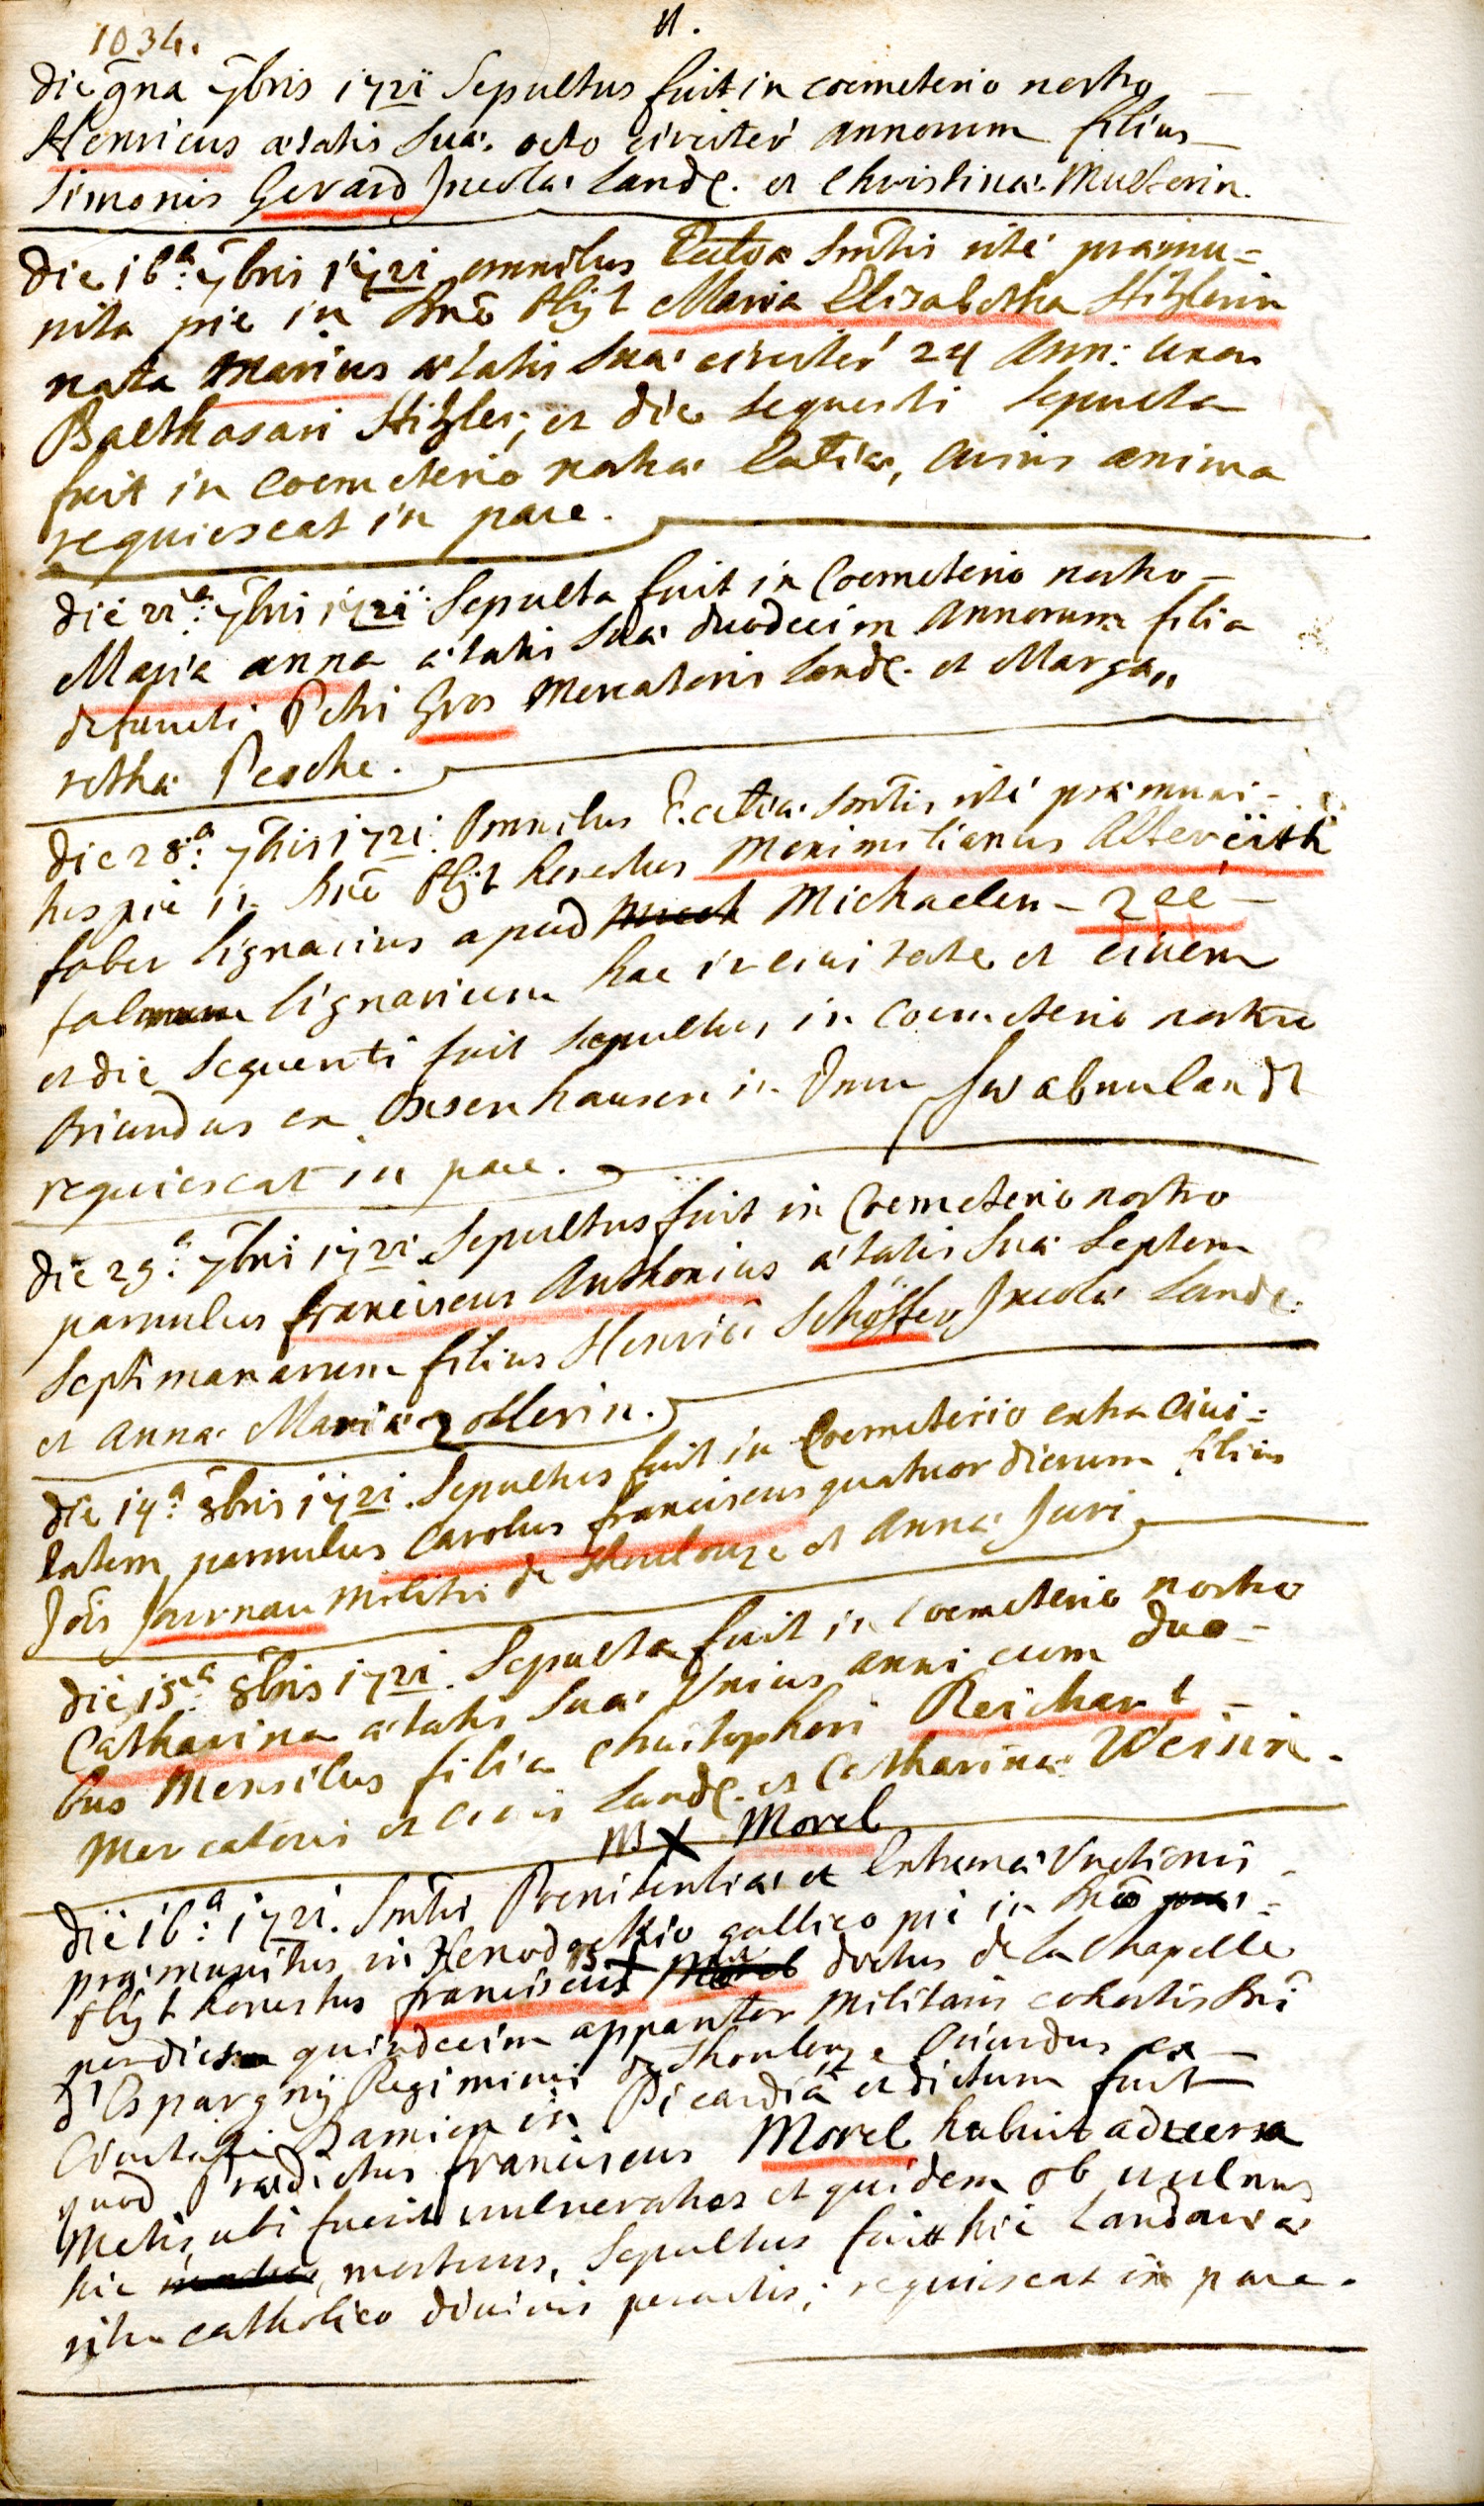 1034.
11.
Die 9na 7bris 1721 Sepultus fuit in coemeterio nostro
Henricus ætatis suæ octo circiter annorum filius
Simonis Gerard Incolæ Land. et Christinæ Mullerin.
Die 16a: 7bris 1721 omnibus Ecclæ Smtis rite præmu=
nita pie in Dno obijt Maria Elisabetha Hitzlerin
nata Marius ætatis suæ circiter 24 Ann: uxor
Balthasari Hitzler; et die sequenti sepulta
fuit in Coemeterio nostræ Ecclæ, cuius anima
requiescat in pace.
die 21a: 7bris 1721 Sepulta fuit in Coemeterio nostro
Maria anna ætatis suæ duodecim Annorum filia
defuncti Petri Gros Mercatoris Land. et Marga„
rethæ Pesche.
Die 28a: 7bris 1721. Omnibus Ecclæ Smtis rite præmuni-
tus pie in Dno obijt honestus Maximilianus Alterëith
faber lignarius apud Michaelem - Zee -
fabrum lignarium hac in civitate et civem
et die sequenti fuit sepultus in coemeterio nostro
oriundus ex Oxsenhausen in Swabenlandt
requiescat in pace.
Die 29a: 7bris 1721 Sepultus fuit in Coemeterio nostro
parvulus franciscus Anthonius ætatis suæ Septem
Septimanarum filius Henrici Schöffer Incolæ Land.
et Annæ Mariæ Zollerin.
die 14a: 8bris 1721. Sepultus fuit in Coemeterio extra Civi=
tatem parvulus Carolus franciscus quatuor dierum filius
Jois Journau militis de Thoulouze et Annæ Juri
die 15a: 8bris 1721. Sepulta fuit in Coemeterio nostro
Catharina ætatis suæ Unius anni cum duo-
bus Mensibus filia Christophori Reichart -
Mercatoris et Civis Land. et Catharinæ Weinin.
Morel
die 16a: 1721. Smtis Poenitentiæ et Extremæ Unctionis
præmunitus in Xenodochio gallico pie in Dno
obijt honestus franciscus dictus de la Chapelle
per dies quindecim apparitor militaris cohortis Dni
d'Espargny Regiminis de Thoulouze oriundus ex
Civitate in Picardia et dictum fuit
quod Prædictus franciscus Morel habuit
Metis, ubi fuerit vulneratus et quidem ob vulnus
hic mortuus, Sepultus fuit hic Landaviæ
ritu catholico divinis peractis; requiescat in pace.